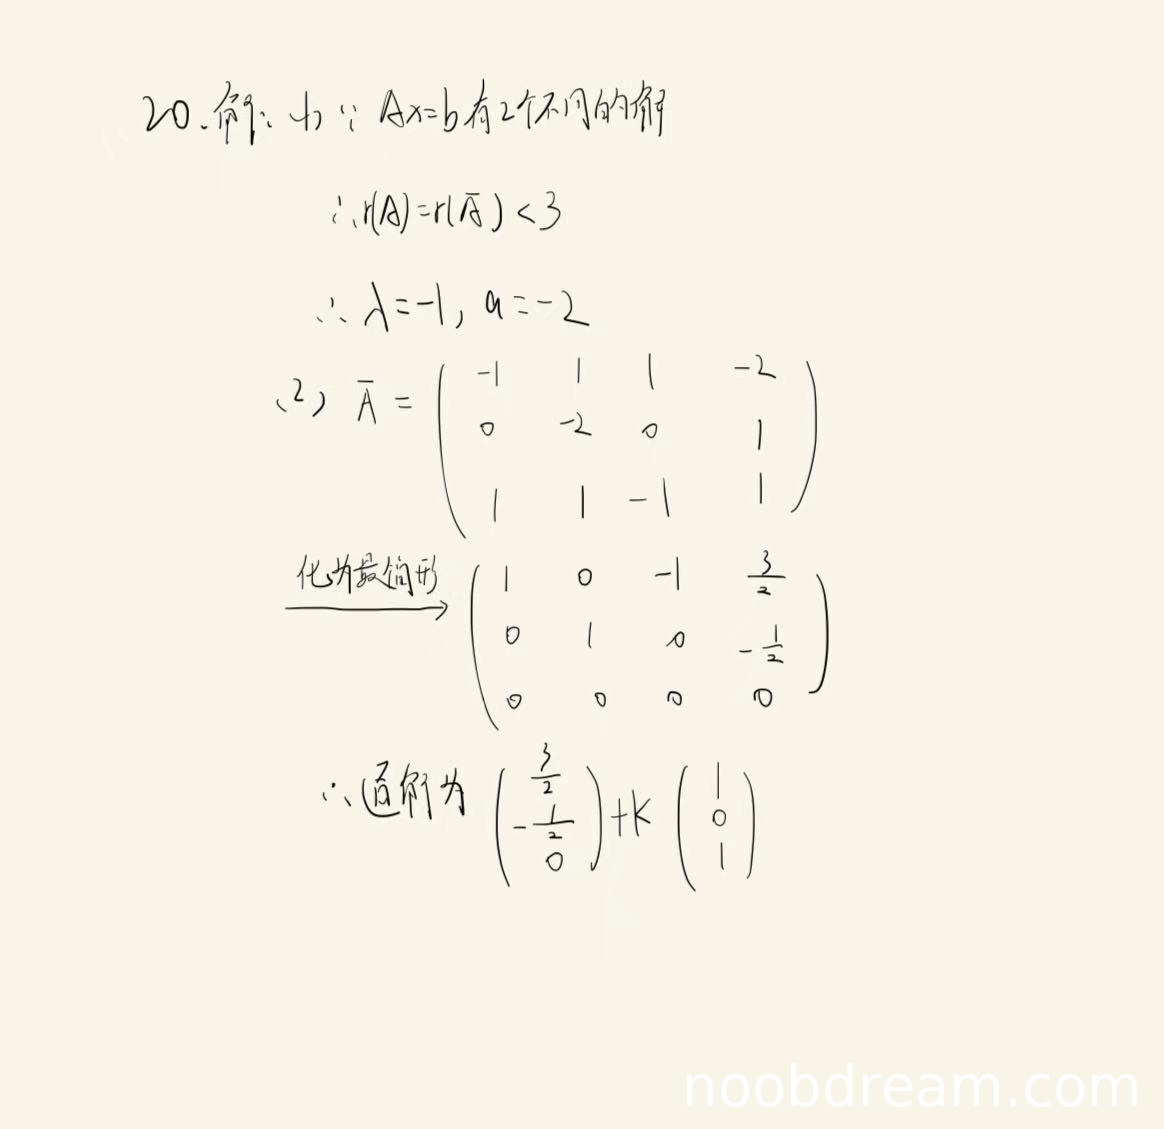 20.解：(1) ∵ Ax=b有2个不同的解
∴r(A)=r(Ā)<3
∴ λ=-1, a=-2
(2) Ā = ( -1 1 1 -2
0 -2 0 1
1 1 -1 1 )
化为最简形 → ( 1 0 -1 3/2
0 1 0 -1/2
0 0 0 0 )
∴通解为 ( 3/2 -1/2 0 ) +k ( 1 0 1 )
noobdream.com